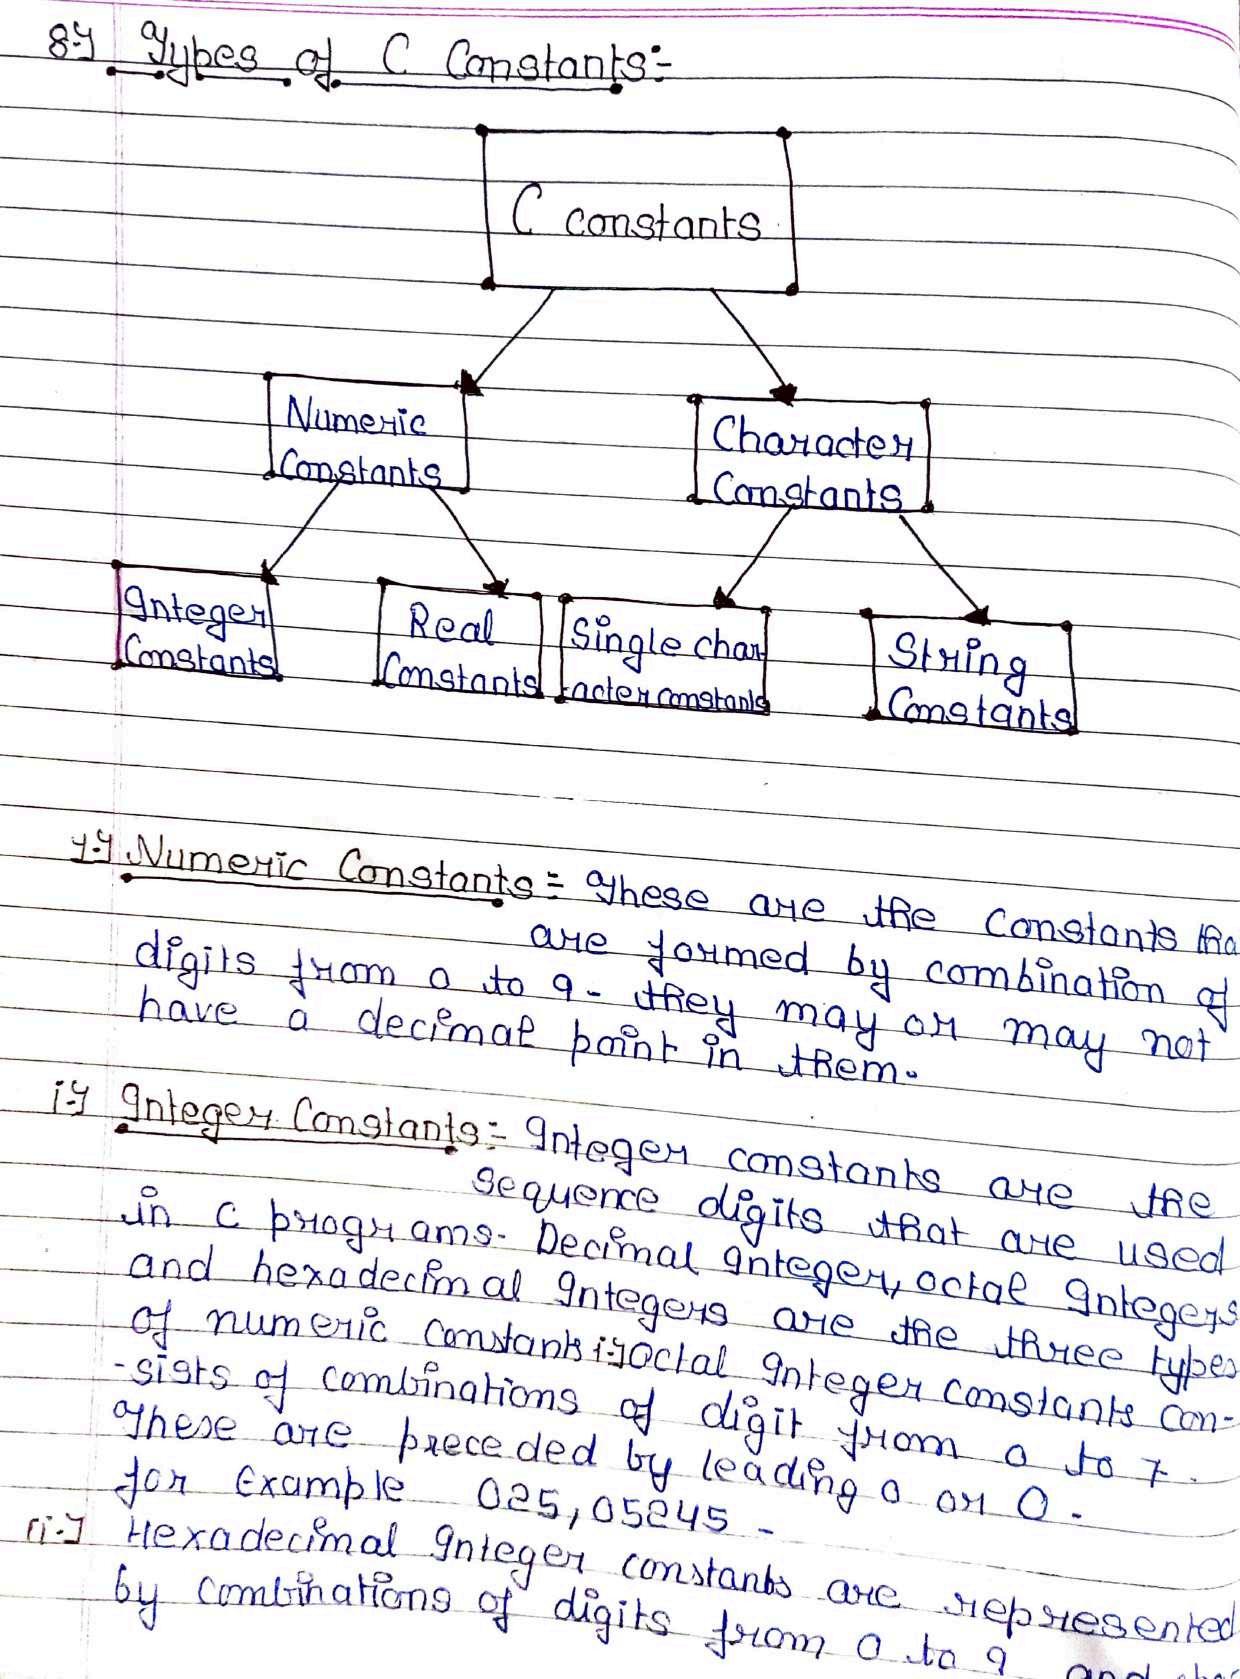 8.) Types of C Constants:-
C constants
Numeric
Constants
Character
Constants
Integer
Constants
Real
Constants
Single char-
-acter constants
String
Constants
1.) Numeric Constants:- These are the Constants tha
are formed by combination of
digits from 0 to 9. they may or may not
have a decimal point in them.
i.) Integer Constants:- Integer constants are the
sequence digits that are used
in C programs. Decimal Integer, octal Integers
and hexadecimal Integers are the three types
of numeric constants i.) Octal Integer constants con-
-sists of combinations of digit from 0 to 7.
These are preceded by leading 0 or O.
for Example 025, 05245.
ii.) Hexadecimal Integer constants are represented
by combinations of digits from 0 to 9 and